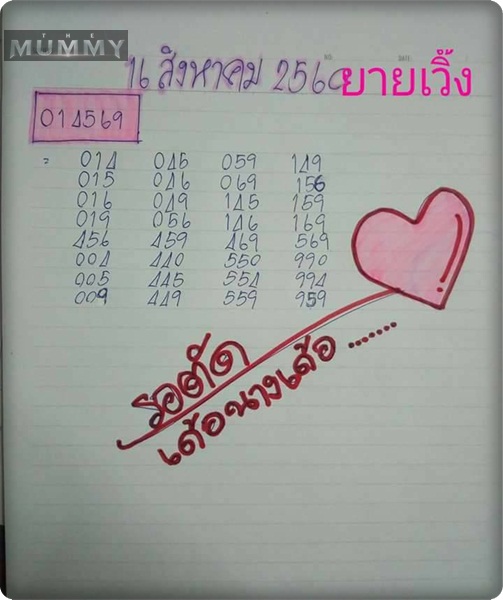 THE
MUMMY
16 สิงหาคม 2560 ยายเวิ้ง
014569
= 014 045 059 149
015 046 069 156
016 049 145 159
019 056 146 169
456 459 469 569
004 440 550 990
005 445 554 994
009 449 559 959
รอตัด
เด้อนางเด้อ.......